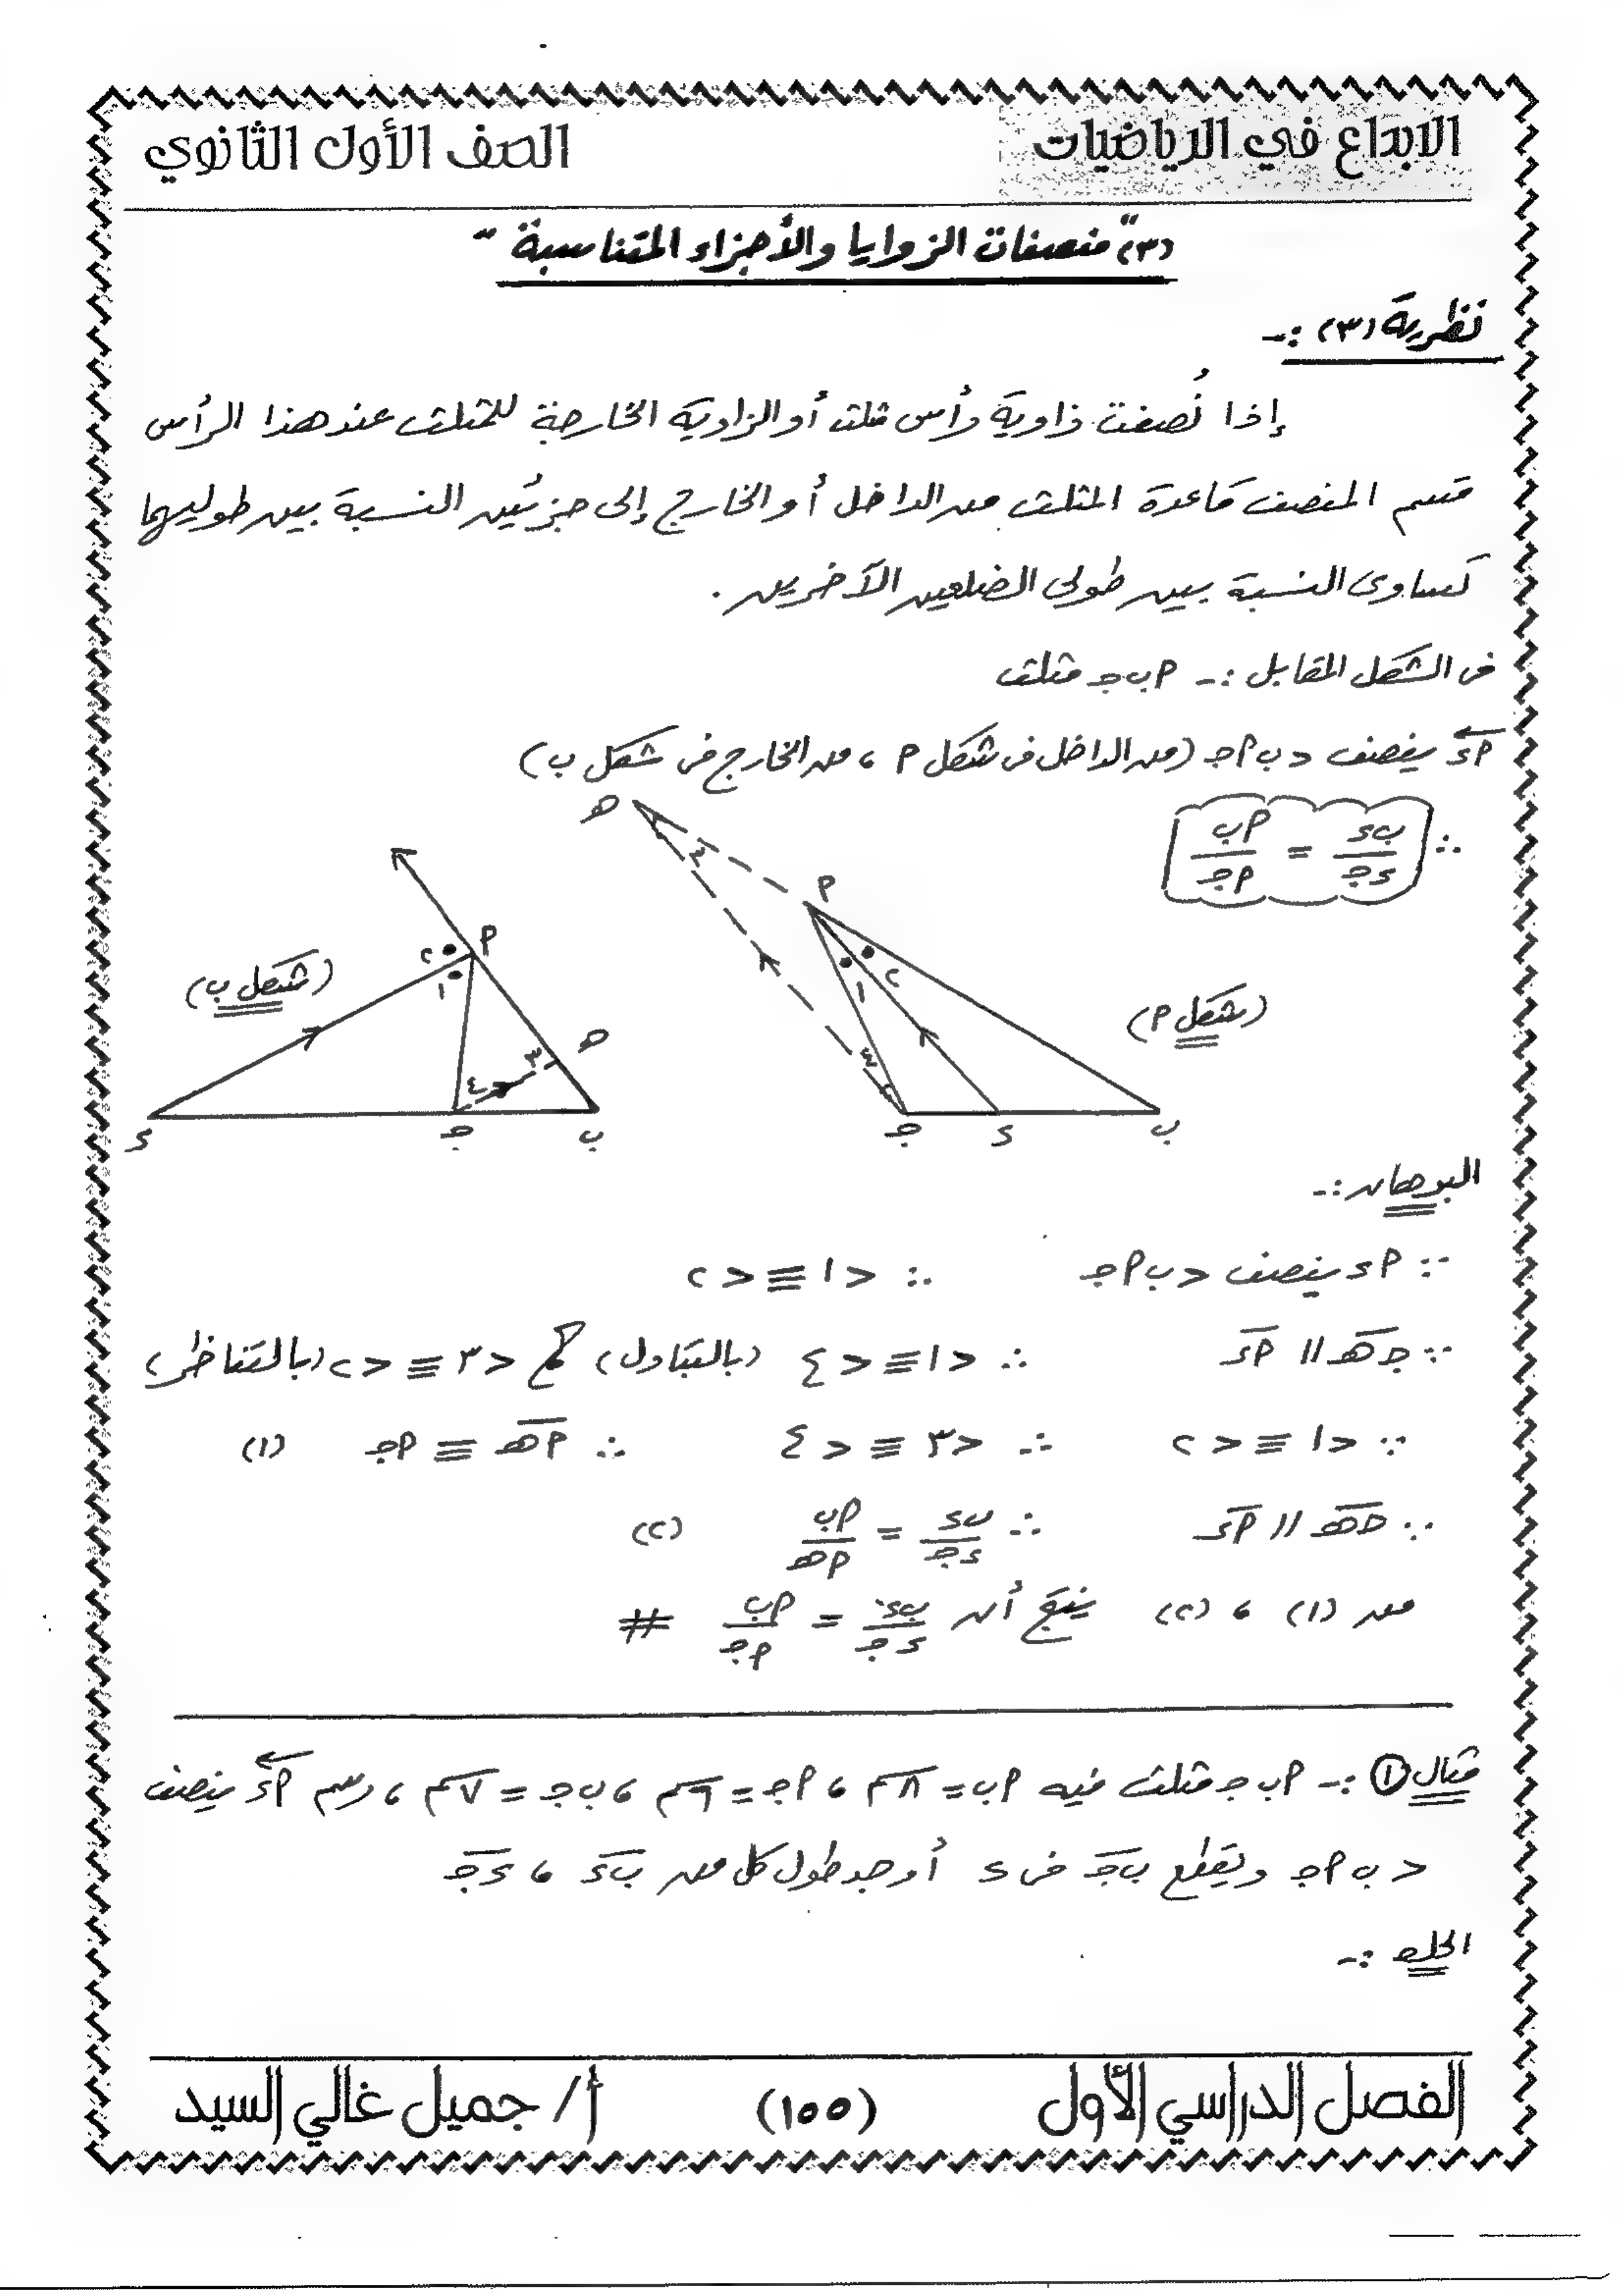 الابداع في الرياضيات
الصف الأول الثانوي
(٣) "منصفات الزوايا والأجزاء المتناسبة"
نظرية (٣) :-
إذا نُصفت زاوية رأس مثلث أو الزاوية الخارجة للمثلث عند هذا الرأس
قسم المنصف قاعدة المثلث من الداخل أو الخارج إلى جزئين النسبة بين طوليهما
تساوى النسبة بين طولي الضلعين الآخرين .
فى الشكل المقابل :- P ب جـ مثلث
P د ينصف > ب P جـ (من الداخل فى شكل P ، من الخارج فى شكل ب)
∴ ب د / د جـ = P ب / P جـ
هـ
P
٤
١
٢
٣
جـ
د
ب
(شكل P)
(شكل ب)
P
٢
١
هـ
٣
٤
د
جـ
ب
البرهان :-
∵ P د ينصف > ب P جـ ∴ > ١ ≡ > ٢
∵ جـ هـ // P د ∴ > ١ ≡ > ٤ (بالتبادل) ، > ٣ ≡ > ٢ (بالتناظر)
∵ > ١ ≡ > ٢ ∴ > ٣ ≡ > ٤ ∴ P هـ ≡ P جـ (١)
∵ جـ هـ // P د ∴ ب د / د جـ = P ب / P هـ (٢)
من (١) ، (٢) ينتج أن ب د / د جـ = P ب / P جـ #
مثال ① :- P ب جـ مثلث فيه P ب = ٨ سم ، P جـ = ٦ سم ، ب جـ = ٧ سم ، رسم P د ينصف
> ب P جـ ويقطع ب جـ فى د أوجد طول كل من ب د ، د جـ
الحل :-
الفصل الدراسي الأول
(١٥٥)
أ/ جميل غالي السيد